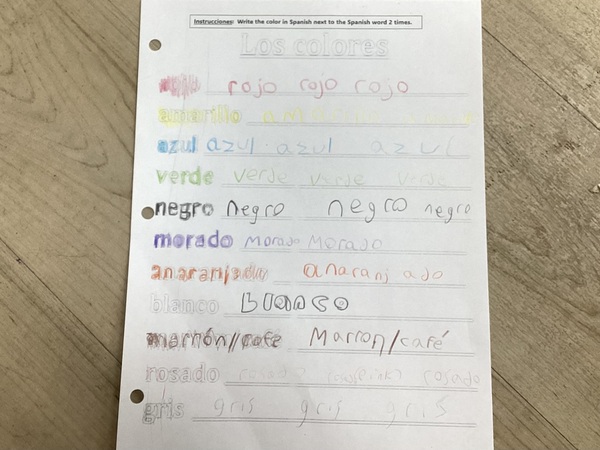 Instrucciones: Write the color in Spanish next to the Spanish word 2 times.
Los colores
rojo rojo rojo rojo
amarillo
azul azul azul azul
verde verde verde verde
negro negro negro negro
morado morado morado
anaranjado anaranjado
blanco blanco
marrón/café Marron/café
rosado rosado
gris gris gris gris